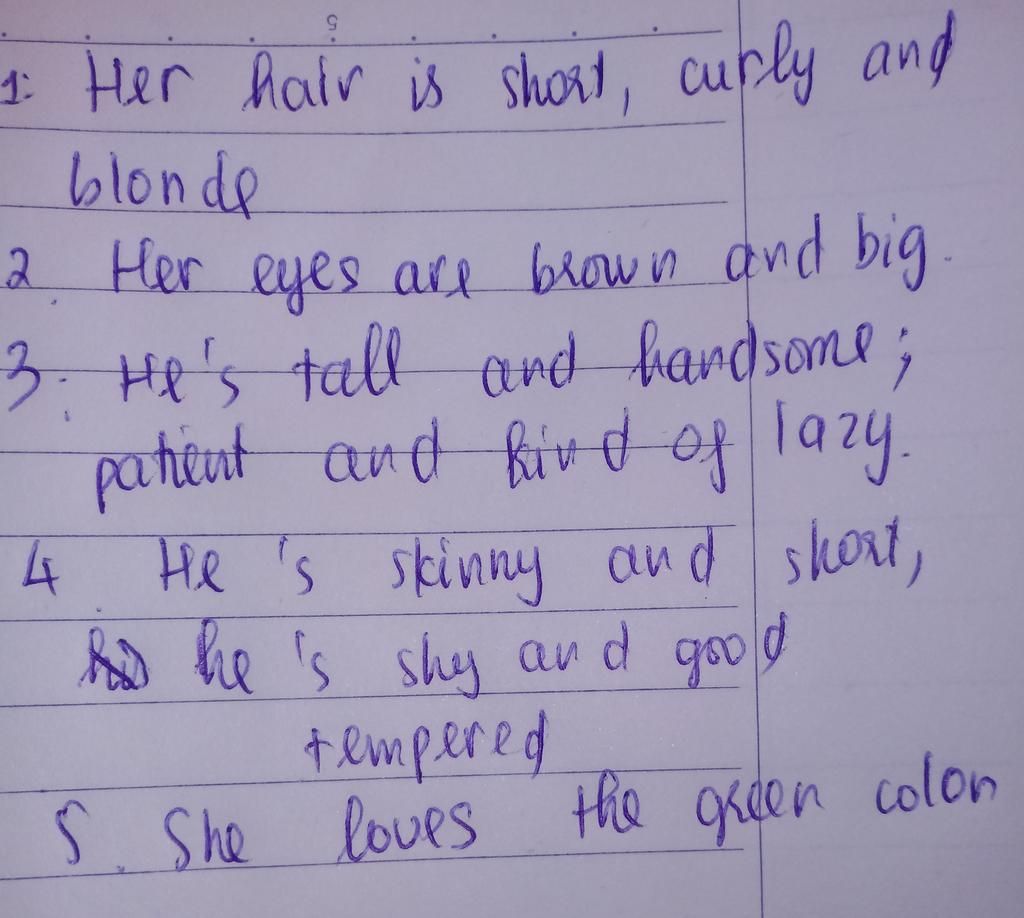 5
1. Her hair is short, curly and
blonde
2. Her eyes are brown and big.
3. He's tall and handsome;
patient and kind of lazy.
4. He's skinny and short,
he's shy and good
tempered
5. She loves the green colon